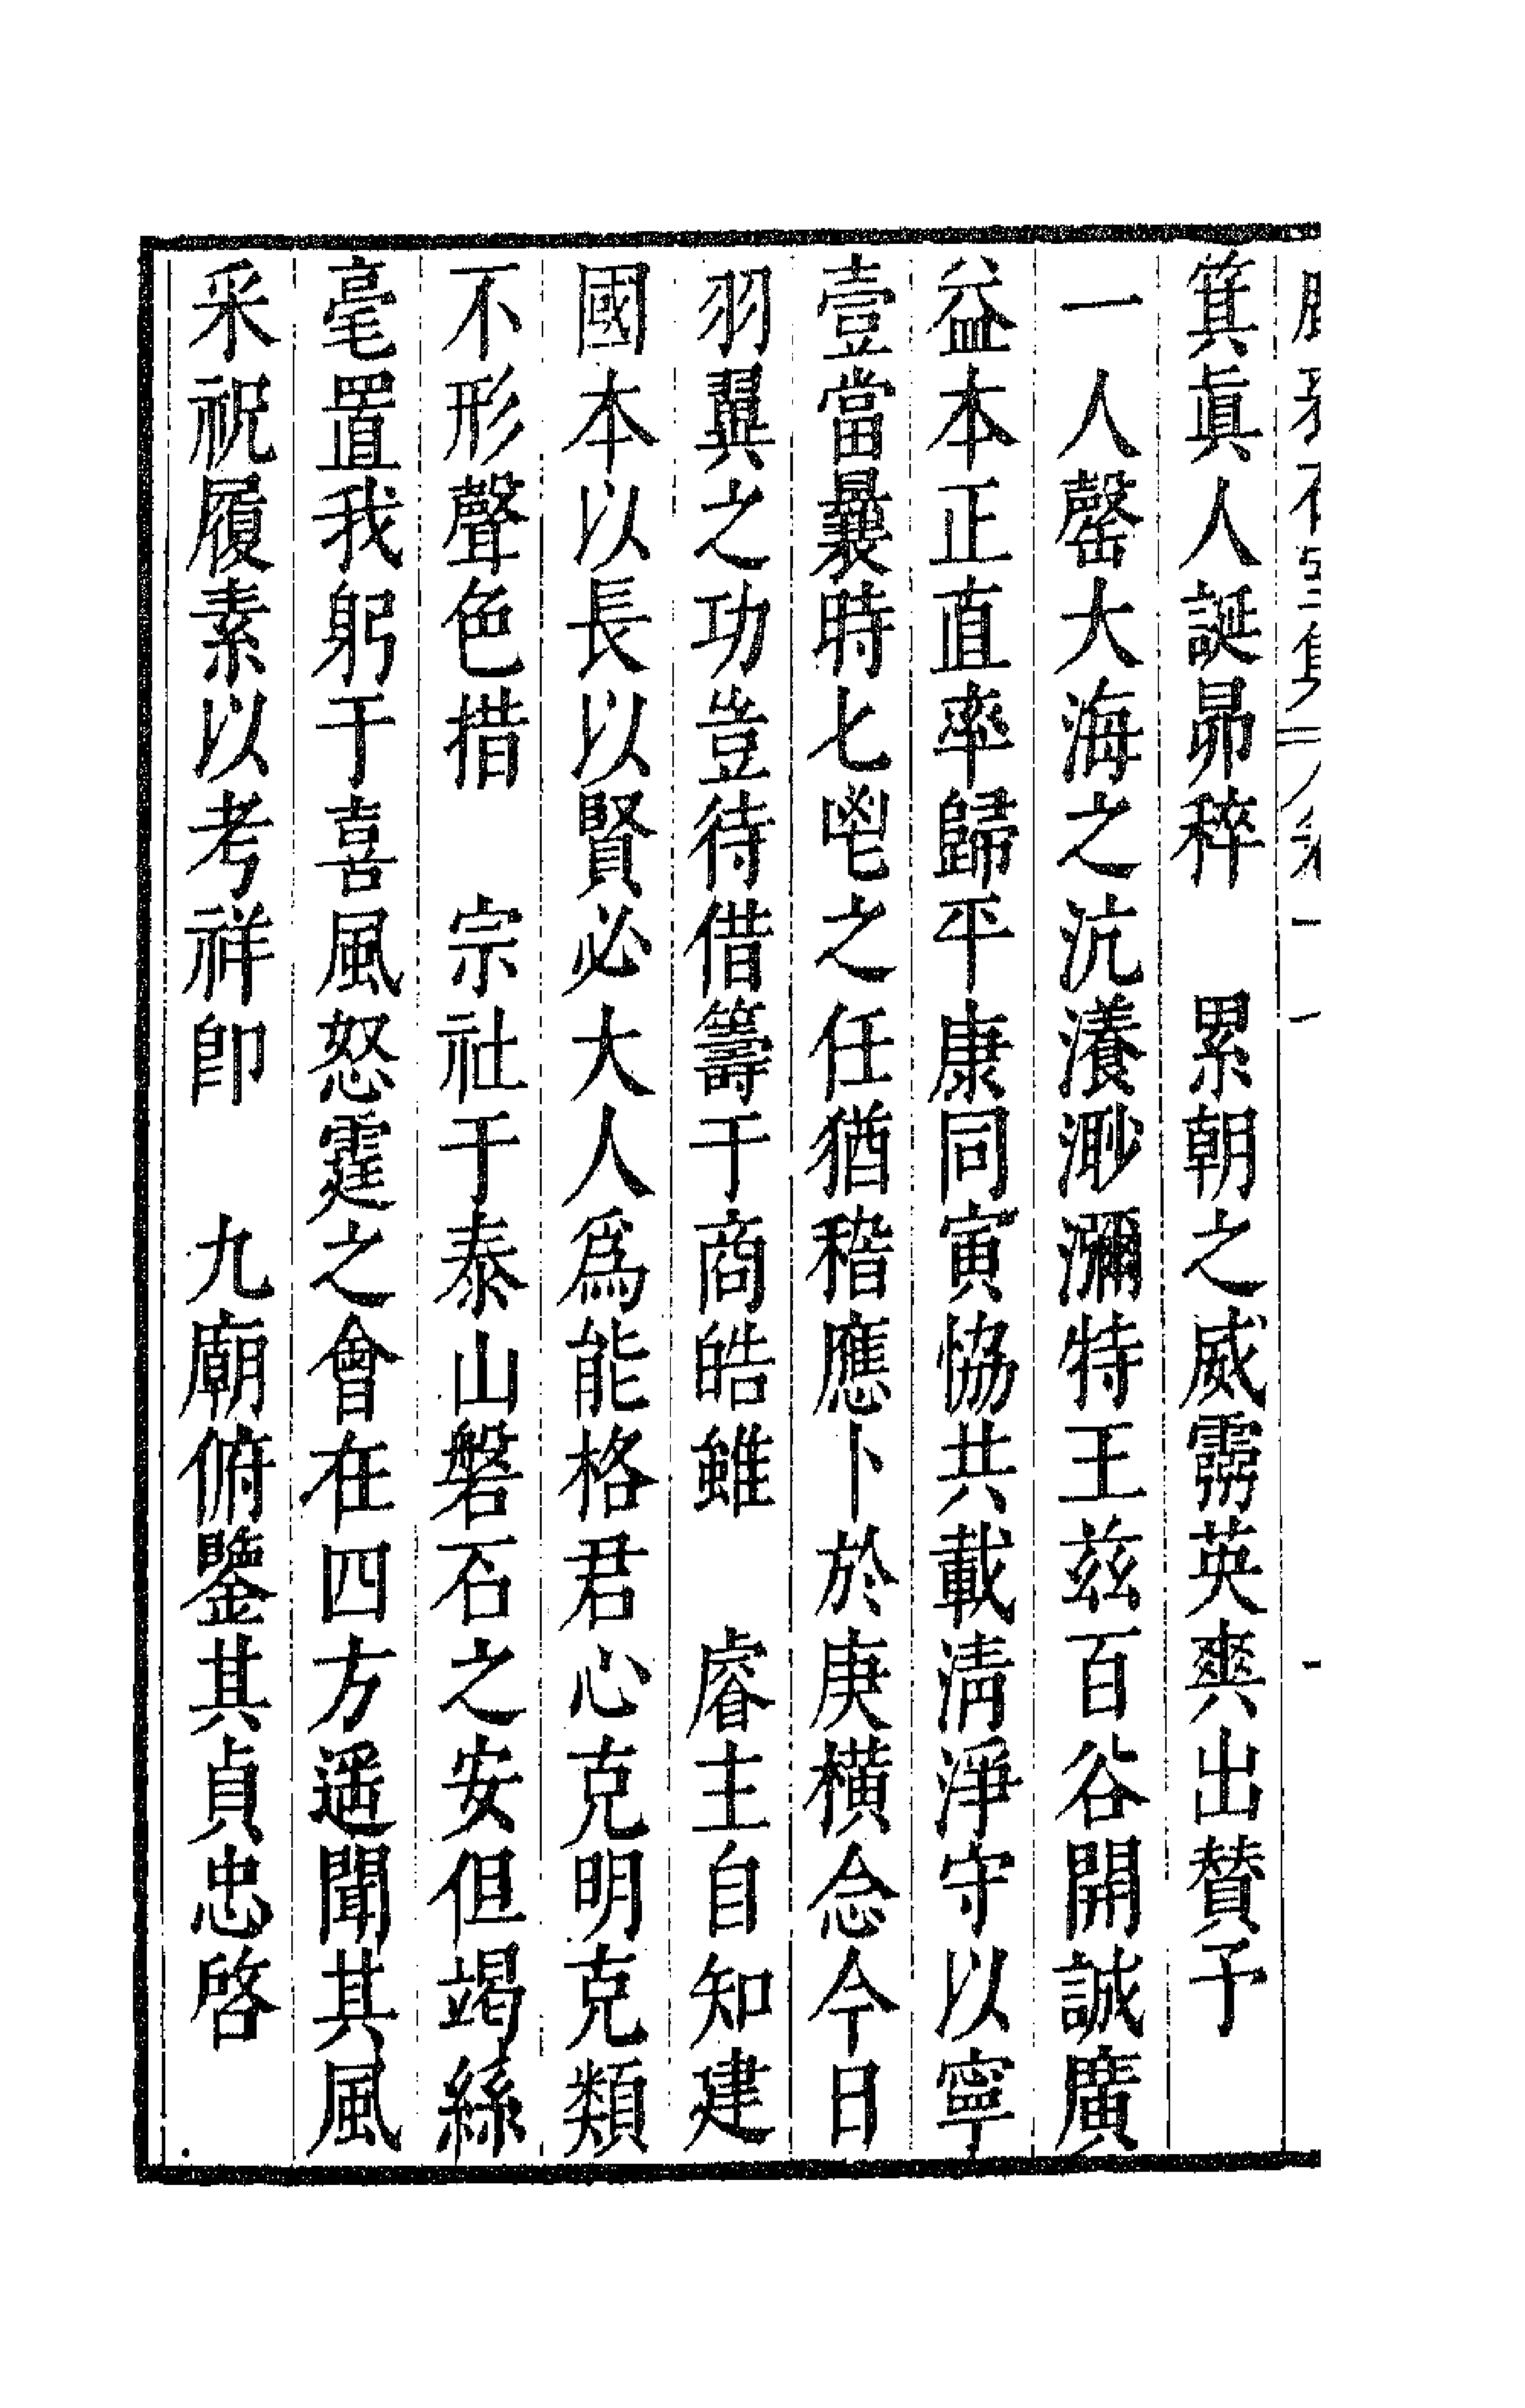 箕眞人誕昴稡　累朝之威靈英爽出贊予
一人罄大海之沆瀁渺瀰特王玆百谷開誠廣
益本正直率歸平康同寅恊共載淸淨守以寧
壹當曩時七鬯之任猶稽應卜於庚橫念今日
羽翼之功豈待借籌于商皓雖　睿主自知建
國本以長以賢必大人爲能格君心克明克類
不形聲色措　宗社于泰山磐石之安但竭絲
毫置我躬于喜風怒霆之會在四方遥聞其風
采祝履素以考祥卽　九廟俯鑒其貞忠啓